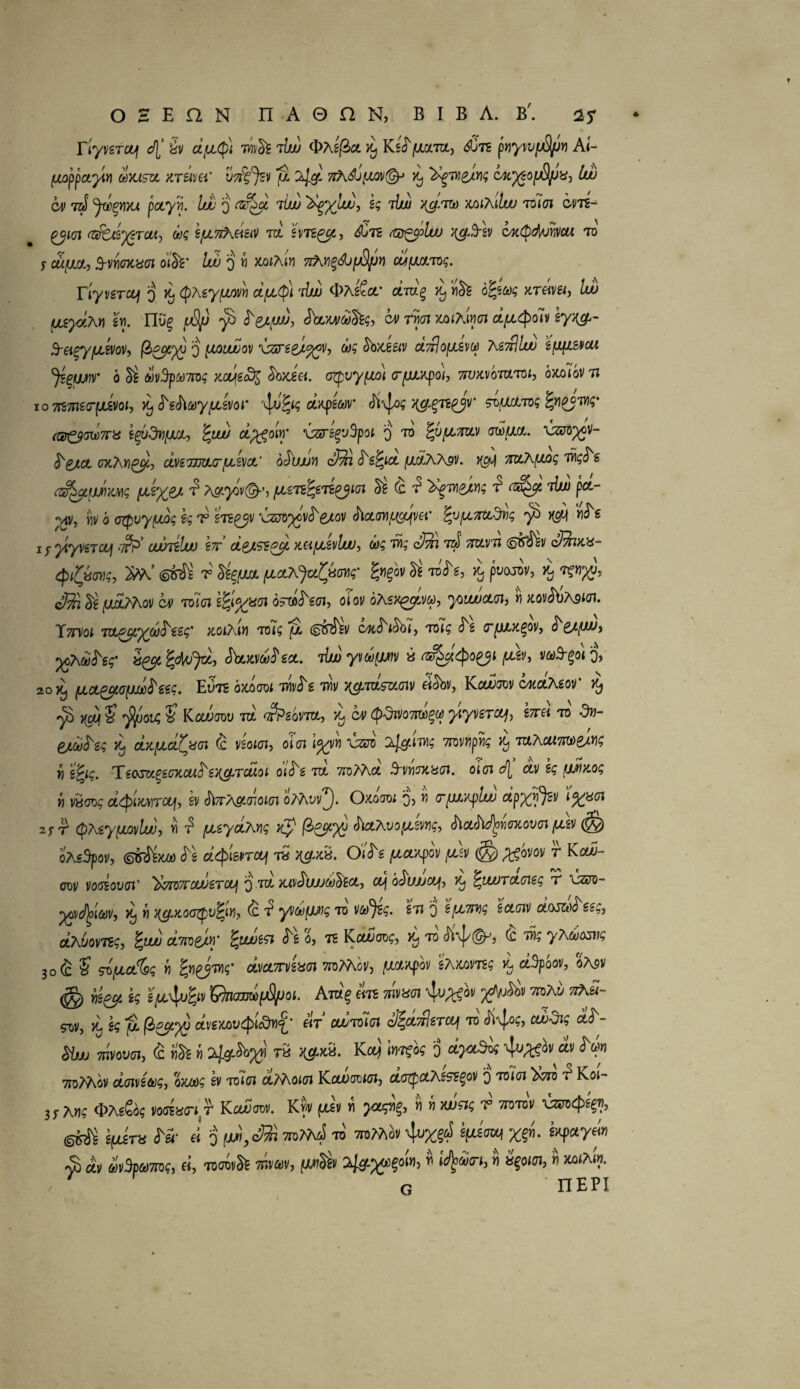 ΟΞΕΩΝ ΠΑΘΩΝ, ΒΙΒΛ. Β'. 25
Γίγνεται δ' ὦν ἀμφὶ τήνδε τὴν Φλέβα καὶ Κέδματα, εὖτε ῥηγνυμένη Αἱ-
μοῤῥαγίη ὤκιστα κτείνει· ὕπερθεν μὲν διὰ πλεύμονος καὶ ἀρτηρίης ἐκχεομένου, ἢν
ἐν τῷ θώρηκι ῥαγῇ. ἢν δὲ παρὰ τὴν ἀρχὴν, ἐς τὴν κάτω κοιλίην τοῖσι ἐντέ-
ροισι περιέρχεται, ὡς ἐμπλέειν τὰ ἔντερα, εὖτε πρὶν κατθεῖν ἐκφῆναι τὸ
5 αἷμα, θνήσκουσι οἵδε· ἢν δὲ ἡ κοιλίη πληρευμένη αἵματος.
Γίγνεται δὲ καὶ φλεγμονὴ ἀμφὶ τὴν Φλέβα· ἀτὰρ καὶ ἥδε ὀξέως κτείνει, ἢν
μεγάλη ἔῃ. Πῦρ μὲν γὰρ δριμὺ, δακνῶδες, ἐν τῇσι κοιλίῃσι ἀμφοῖν ἐγκα-
θειργμένον, βραχὺ δὲ μοῦνον ὑπερίσχον, ὡς δοκέειν ἁπτομένῳ λεπτὴν ἔμμεναι
θέρμην· ὁ δὲ ὤνθρωπος καίεσθαι δοκέει. σφυγμοὶ σμικροὶ, πυκνότατοι, ὁκοῖόν τι
10 πεπιεσμένοι, καὶ δεδιωγμένοι· ψύξις ἀκρέων· δίψος καρτερόν· στόματος ξηρότης·
προσώπου ἐρύθημα, ξὺν ὠχροίῃ· ὑπέρυθροι δὲ τὸ ξύμπαν σῶμα. ὑποχόν-
δρια σκληρὰ, ἀνεσπασμένα· ὀδύνη ἐπὶ δεξιὰ μᾶλλον. καὶ παλμὸς τῆς δὲ
παραμήκης μέχρι τῶν λαγόνων, μετεξετέροισι δὲ καὶ τῆς ἀρτηρίης τῆς παρὰ τὴν ῥά-
χιν, ἣν ὁ σφυγμὸς ἐς τὸ ἕτερον ὑποχόνδριον διασημαίνει· ξυμπαθὴς γὰρ καὶ ἥδε
15 γίγνεται τῇ ἑωυτέῳ ἐπ' ἀριστερὰ κειμένην, ὡς τῆς ἐπὶ τῷ παντὶ οὐδὲν ἐπικου-
φιζούσης, ἀλλ' οὐδὲ τὸ δέρμα μαλθαζούσης· ξηρὸν δὲ τόδε, καὶ ῥυσὸν, καὶ τρηχὺ,
ἐπὶ δὲ μᾶλλον ἐν τοῖσι ἐξίσχουσι ὀστώδεσι, οἷον ὀλεκράνῳ, γούνασι, ἢ κονδύλοισι.
Ὕπνοι ταραχώδεες· κοιλίη τοῖς μὲν οὐδὲν ἐκδιδοῖ, τοῖς δὲ σμικρὸν, δριμὺ,
χολῶδες· οὖρα ξανθὰ, δακνώδεα. τὴν γνώμην οὐ παράφοροι μὲν, νωθροὶ δὲ,
20 καὶ μαρασμώδεες. Εὖτε ὁκόσοι τήνδε τὴν κατάστασιν εἶδον, Καῦσον ἐκάλεον· καὶ
γὰρ καὶ τοῦ γένους τοῦ Καύσου τὰ παρεόντα, καὶ ἐν φθινοπώρῳ γίγνεται, ἐπεὶ τὸ θη-
ριῶδες καὶ ἀκμάζουσι καὶ νέοισι, οἷσι ἰσχνὴ ὑπὸ διαίτης πονηρῆς καὶ ταλαιπωρίης
ἡ ἕξις. Τεσσαρεσκαιδεκαταῖοι οἵδε τὰ πολλὰ θνήσκουσι. οἷσι δ' ἂν ἐς μῆκος
ἡ νοῦσος ἀφίκηται, ἐν διπλασίοισι ὄλλυνται. Ὁκόσοι δὲ, ἢ σμικρὴν ἀρχῆθεν ἴσχουσι
25 τὴν φλεγμονὴν, ἢ τῆς μεγάλης κατὰ βραχὺ διαλυομένης, διαδιδρήσκουσι μὲν τὸν
ὄλεθρον, οὐδέκω δὲ ἀφίενται τοῦ κακοῦ. Οἵδε μακρὸν μὲν τὸν χρόνον τὸν Καῦ-
σον νοσέουσι· ἀποπαύεται δὲ τὰ κινδυνώδεα, αἱ ὀδύναι, καὶ ξυντάσιες τῶν ὑπο-
χονδρίων, καὶ ἡ κακοσφυξίη, καὶ τῆς γνώμης τὸ νωθές. ἔτι δὲ ἔμπης ἔασιν ἀσώδεες,
ἀλύοντες, ξὺν ἀπορίῃ· ξύνεστι δὲ ὅ, τε Καῦσος, καὶ τὸ δίψος, καὶ τῆς γλώσσης
30 καὶ τοῦ στόματος ἡ ξηρότης· ἀναπνέουσι πολλὸν, μακρὸν ἕλκοντες καὶ ἀθρόον, ὅλον
τὸν ἠέρα ἐς ἔμψυξιν ἐπισπώμενοι. Ἀτὰρ εἴτε πίνουσι ψυχρὸν χανδὸν πολὺ πλεῖ-
στον, καὶ ἐς μὲν βραχὺ ἀνεκουφίσθησαν· εἶτ' αὐτοῖσι ἐξάπτεται τὸ δίψος, αὖθις ἄδ-
δην πίνουσι, καὶ ἥδε ἡ διαδοχὴ τοῦ κακοῦ. Καὶ ἰητρὸς δὲ ἀγαθὸς ψυχρὸν ἂν δῴη
πολλὸν ἀσινέως, ὅκως ἐν τοῖσι ἄλλοισι Καύσοισι, ἀσφαλέστερον δὲ τοῖσι ὑπὸ τῆς Κοί-
35 λης Φλεβὸς νοσέουσι τὸν Καῦσον. Κἢν μὲν ἡ γαστὴρ, ἢ ἡ κύστις τὸ ποτὸν ὑποφέρῃ,
οὐδὲ ἐμέτου δεῖ· εἰ δὲ μὴ, ἐπὶ πολλῷ τὸ πολλὸν ψυχρῷ ἐμέσαι χρή. ἐκραγείη
γὰρ ἂν ὤνθρωπος, εἰ, τοσόνδε πίνων, μηδὲν διαχωροίη, ἢ ἱδρῶσι, ἢ οὔροισι, ἢ κοιλίῃ.
G ΠΕΡΙ